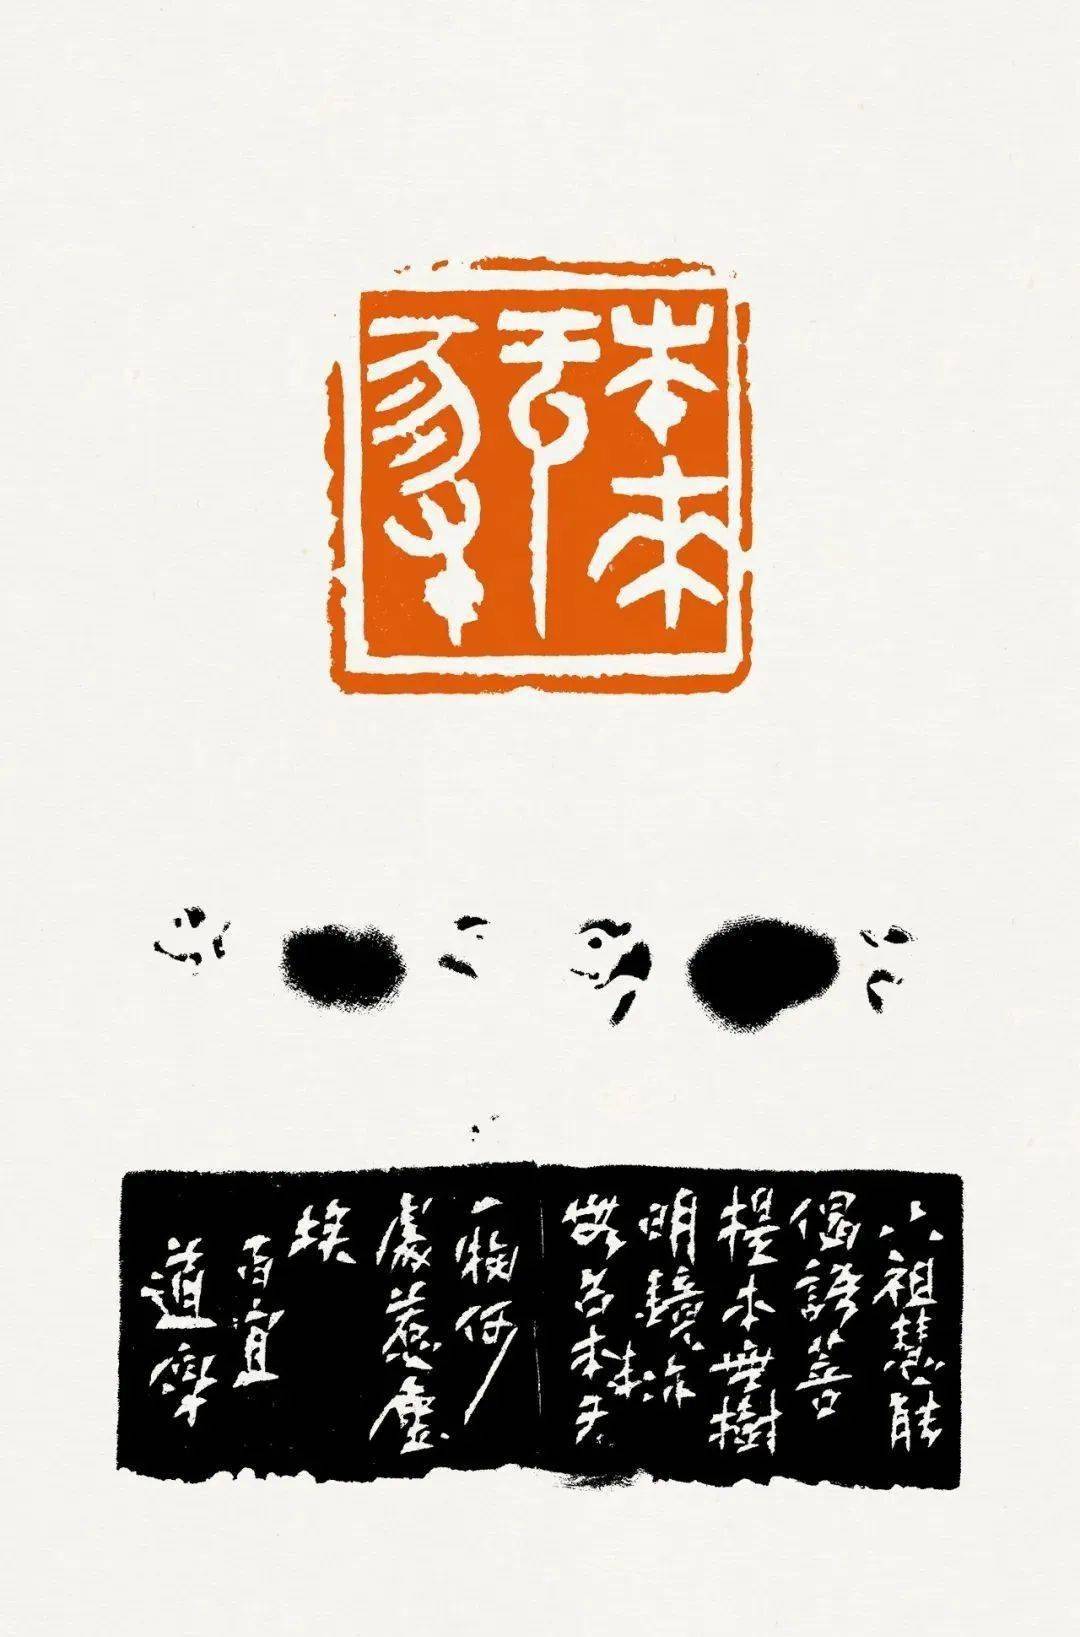 本来
无
一物
六祖慧能
偈語菩
提本無樹
明鏡亦
無台本来无
一物何
處惹塵
埃
百宜
道